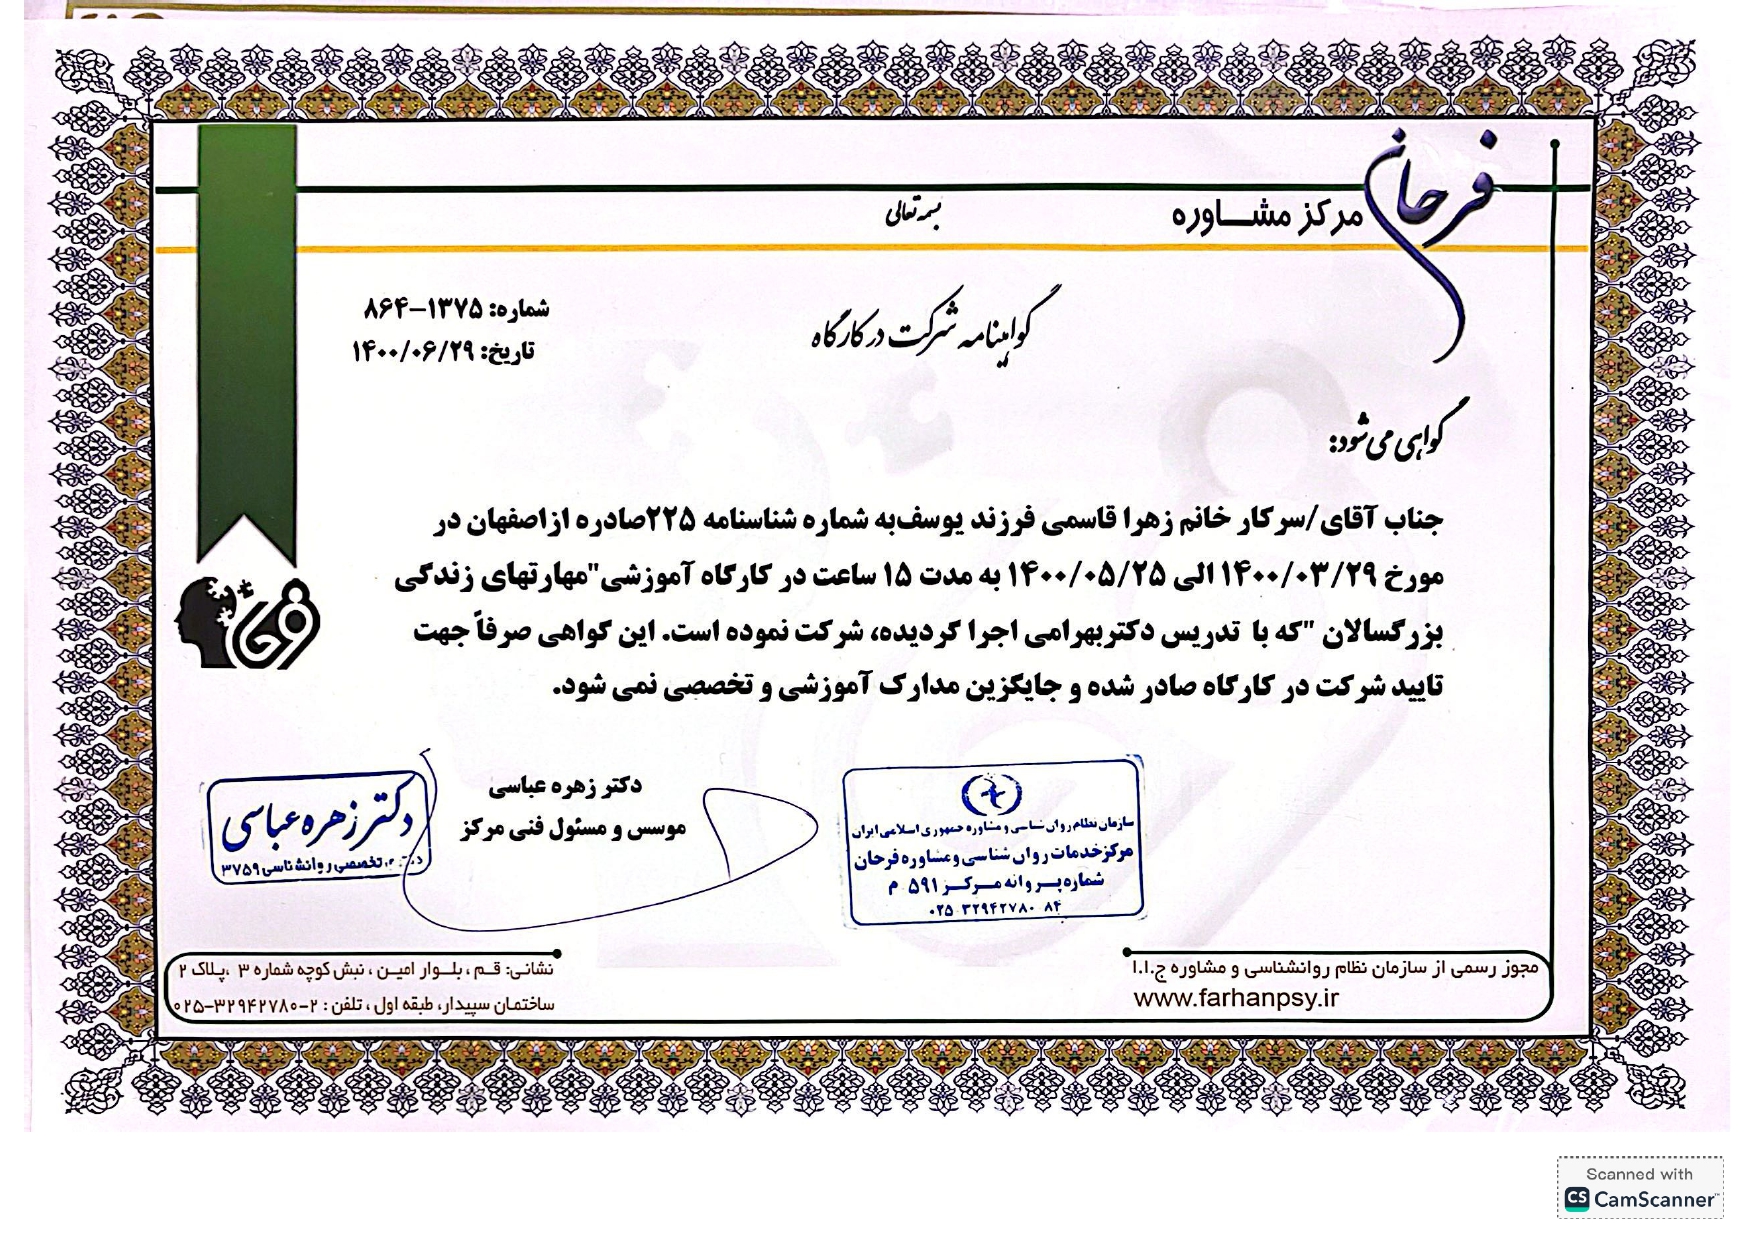 فرحان
مرکز مشاوره
بسمه تعالی
شماره: ۱۳۷۵-۸۶۴
تاریخ: ۱۴۰۰/۰۶/۲۹
گواهینامه شرکت در کارگاه
گواهی می شود:
جناب آقای/سرکار خانم زهرا قاسمی فرزند یوسف‌به شماره شناسنامه ۲۲۵صادره ازاصفهان در
مورخ ۱۴۰۰/۰۳/۲۹ الی ۱۴۰۰/۰۵/۲۵ به مدت ۱۵ ساعت در کارگاه آموزشی"مهارتهای زندگی
بزرگسالان "که با تدریس دکتربهرامی اجرا گردیده، شرکت نموده است. این گواهی صرفاً جهت
تایید شرکت در کارگاه صادر شده و جایگزین مدارک آموزشی و تخصصی نمی شود.
دکتر زهره عباسی
موسس و مسئول فنی مرکز
دکتر زهره عباسی
تخصصی روانشناسی ۳۷۵۹
سازمان نظام روان شناسی و مشاوره جمهوری اسلامی ایران
مرکز خدمات روان شناسی و مشاوره فرحان
شماره پروانه مرکز ۵۹۱ م
۰۲۵ ۳۲۹۴۲۷۸۰ ۸۴
مجوز رسمی از سازمان نظام روانشناسی و مشاوره ج.ا.ا
www.farhanpsy.ir
نشانی: قم ، بلوار امین ، نبش کوچه شماره ۳ ،پلاک ۲
ساختمان سپیدار، طبقه اول ، تلفن : ۲-۰۲۵-۳۲۹۴۲۷۸۰
Scanned with
CS CamScanner